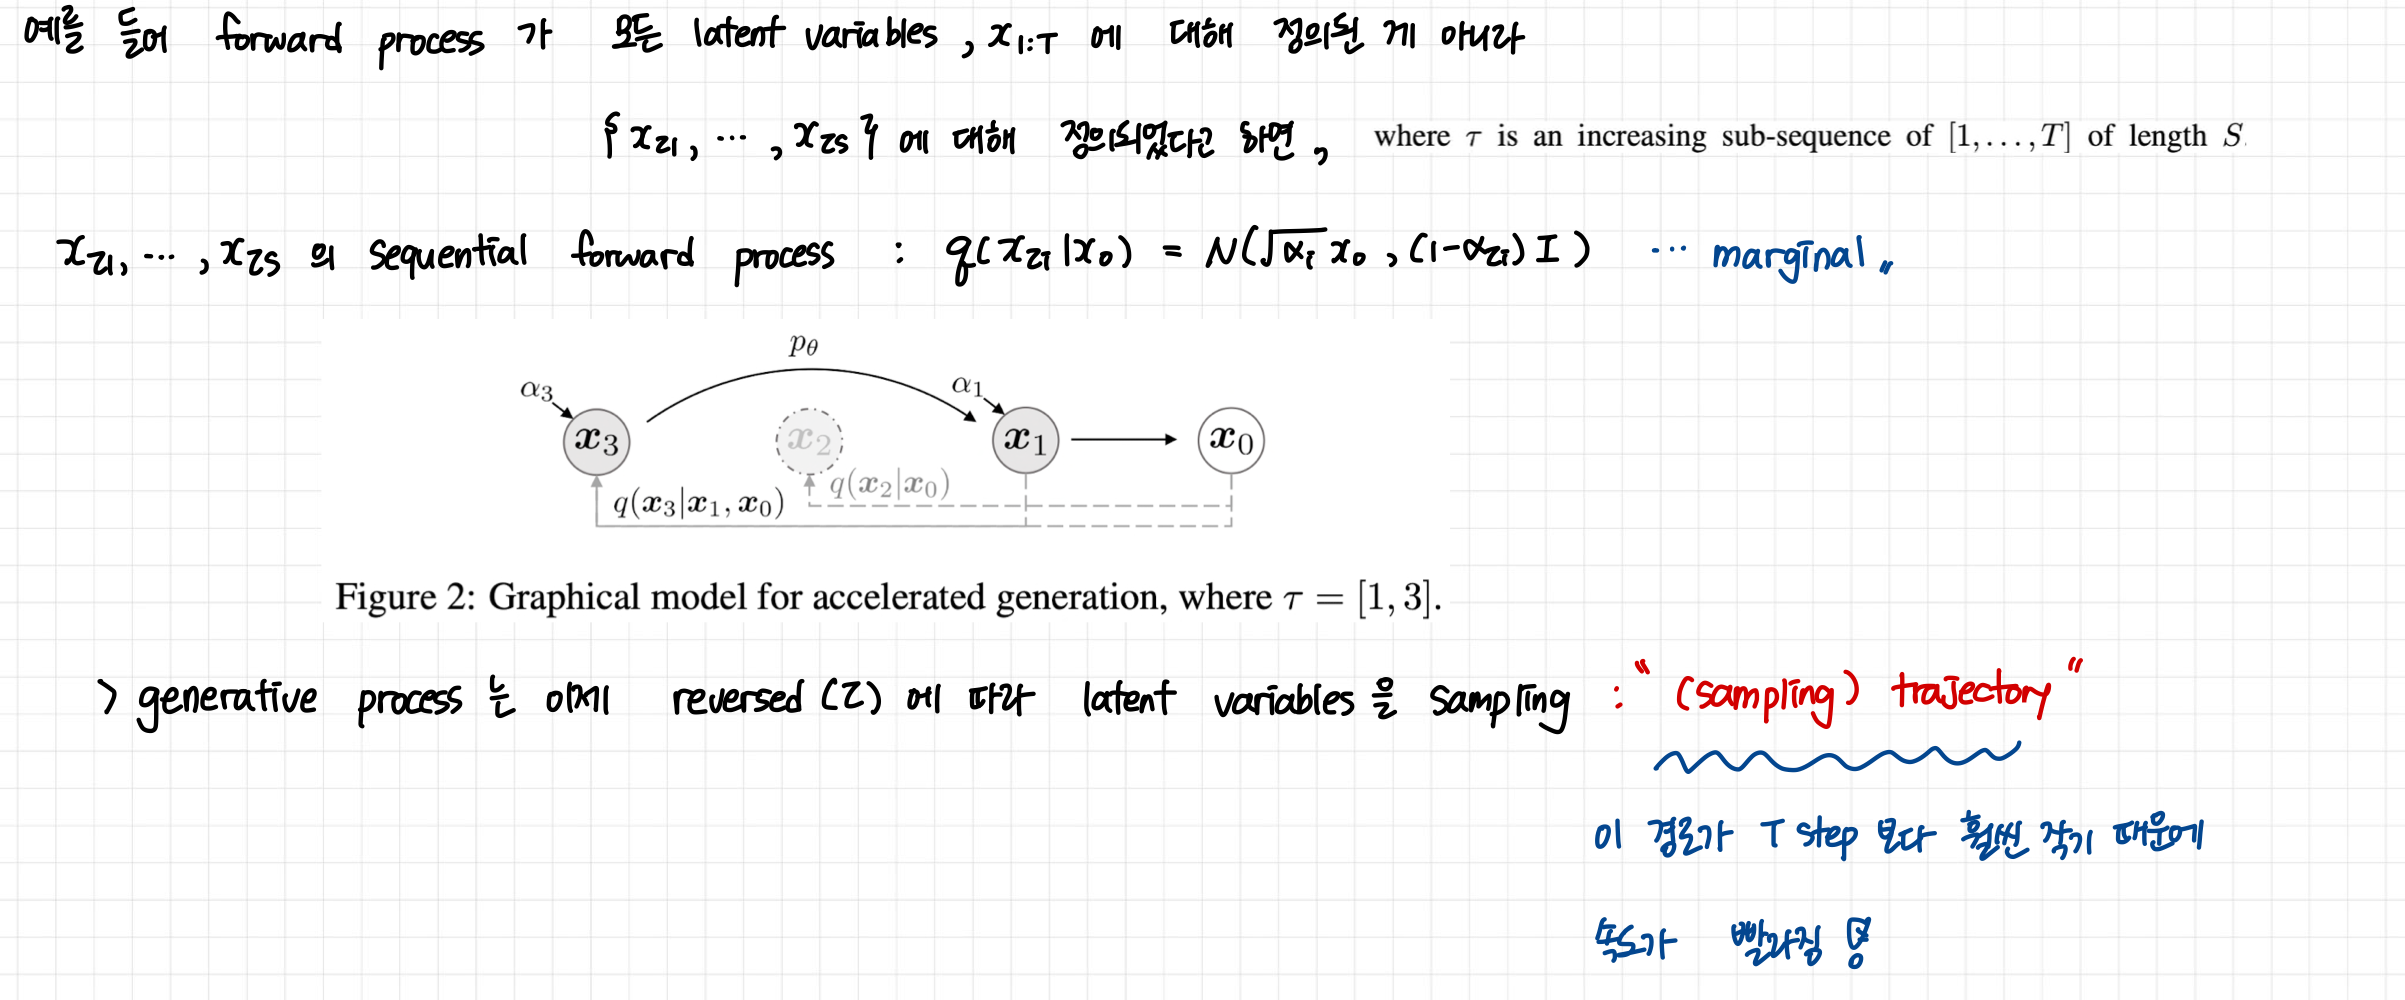 예를 들어 forward process 가 모든 latent variables , x_{1:T} 에 대해 정의된 게 아니라
{ x_{τ1}, ⋯ , x_{τS} } 에 대해 정의되었다고 하면, where τ is an increasing sub-sequence of [1, . . . , T] of length S.
x_{τ1}, ⋯ , x_{τS} 의 sequential forward process : q(x_{τi}|x_0) = N(√α_i x_0 , (1-α_{τi}) I ) ⋯ marginal 〃
p_θ
α_3
α_1
x_3
x_2
x_1
x_0
q(x_2|x_0)
q(x_3|x_1, x_0)
Figure 2: Graphical model for accelerated generation, where τ = [1, 3].
> generative process 는 이제 reversed (τ) 에 따라 latent variables 을 sampling : "(sampling) trajectory"
이 경로가 T step 보다 훨씬 작기 때문에
속도가 빨라짐